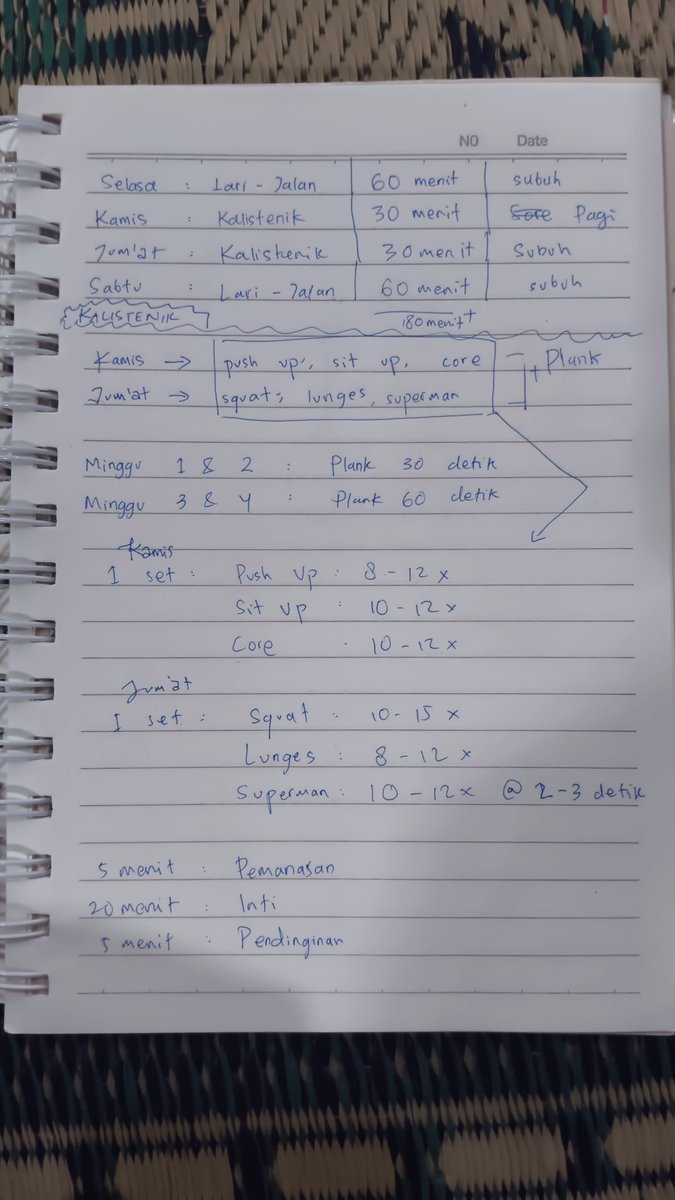 NO Date
Selasa : Lari - Jalan 60 menit subuh
Kamis : Kalistenik 30 menit Sore Pagi
Jum'at : Kalistenik 30 menit Subuh
Sabtu : Lari - Jalan 60 menit subuh
KALISTENIK 180 menit +
Kamis → push up, sit up, core + Plank
Jum'at → squat, lunges, superman
Minggu 1 & 2 : Plank 30 detik
Minggu 3 & 4 : Plank 60 detik
Kamis
1 set : Push Up : 8 - 12 x
Sit Up : 10 - 12 x
Core : 10 - 12 x
Jum'at
1 set : Squat : 10 - 15 x
Lunges : 8 - 12 x
Superman : 10 - 12 x @ 2-3 detik
5 menit : Pemanasan
20 menit : Inti
5 menit : Pendinginan